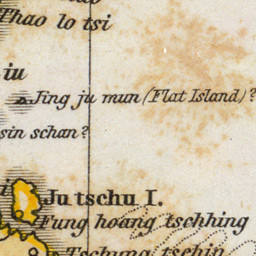 Thao lo tsi
iu
Jing ju mun (Flat Island)?
sin schan?
Ju tschu I.
Fung hoang tschhing
Tschung tschin